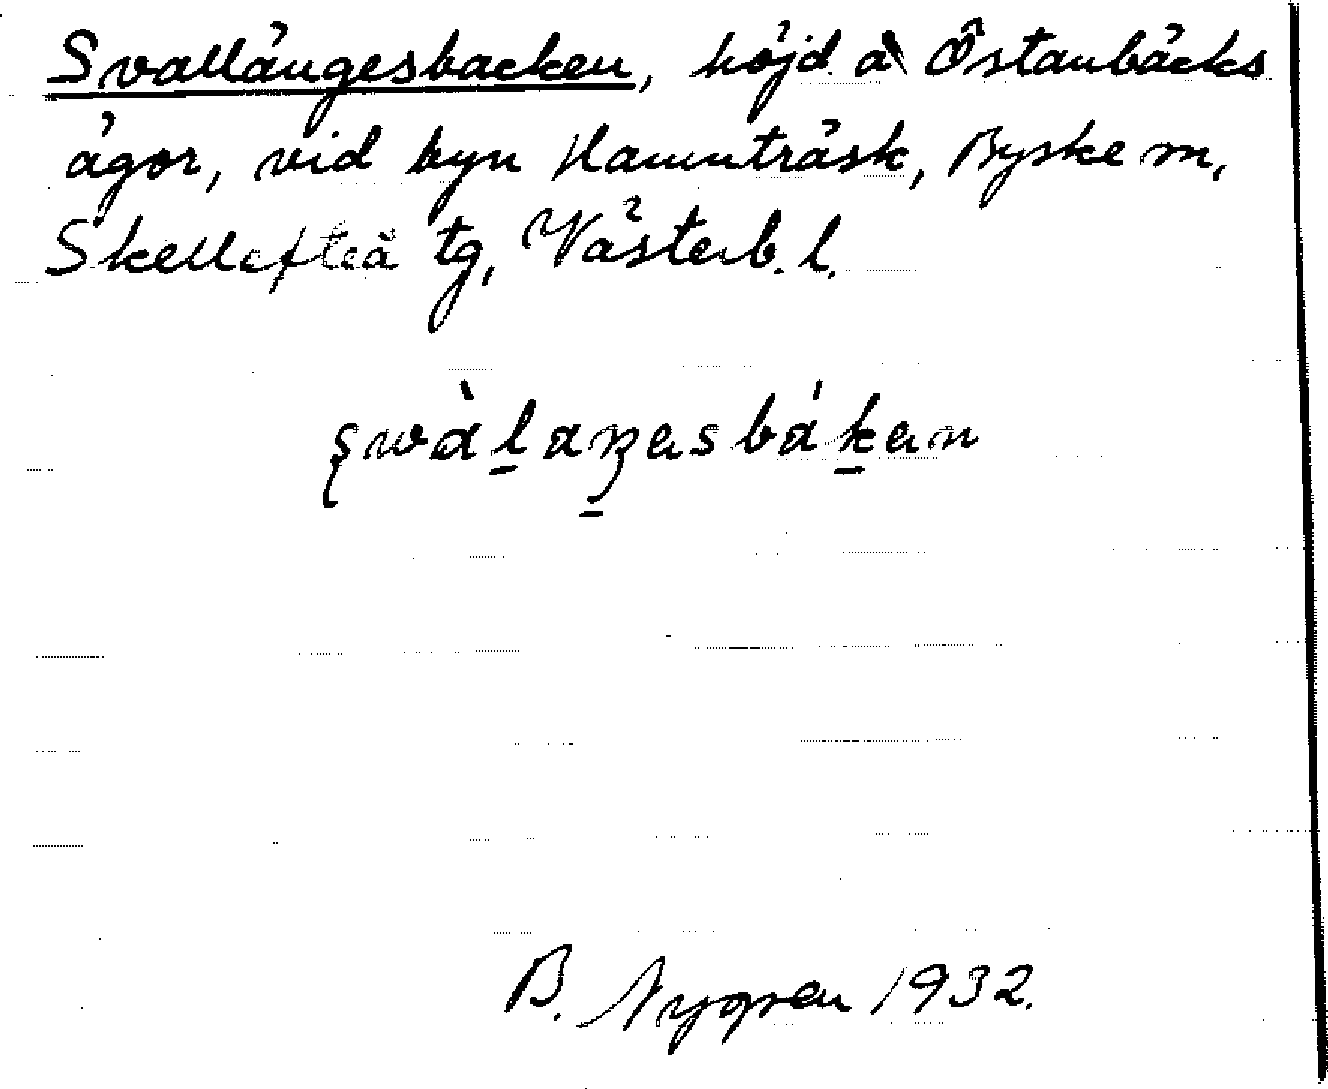 Svallängesbacken, höjd å Östanbäcks
ägor, vid byn Hamnträsk, Byske m,
Skellefteå tg, Västerb. l.
swàlaŋesbákan
B. Nygren 1932.